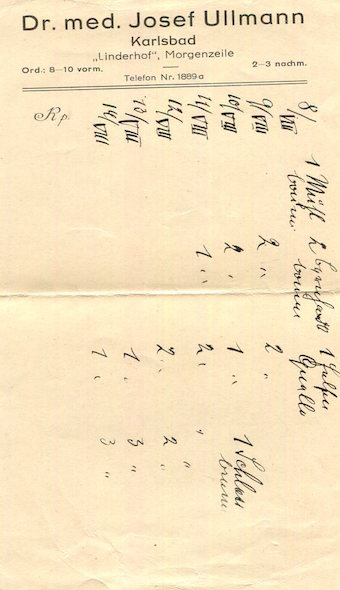 Dr. med. Josef Ullmann
Karlsbad
„Linderhof“, Morgenzeile
Ord.: 8–10 vorm. 2–3 nachm.
Telefon Nr. 1889a
Rp.
8/VIII 1 Mühl 2 1
brunn brunn Quelle
9/VIII 2 „ 2 „
10/VIII 2 „ 1 „ 1 Schloss
brunn
11/VIII 1 „ 2 „ „
12/VIII 2 „ 2 „
13/VIII 1 „ 3 „
14/VIII 1 „ 3 „